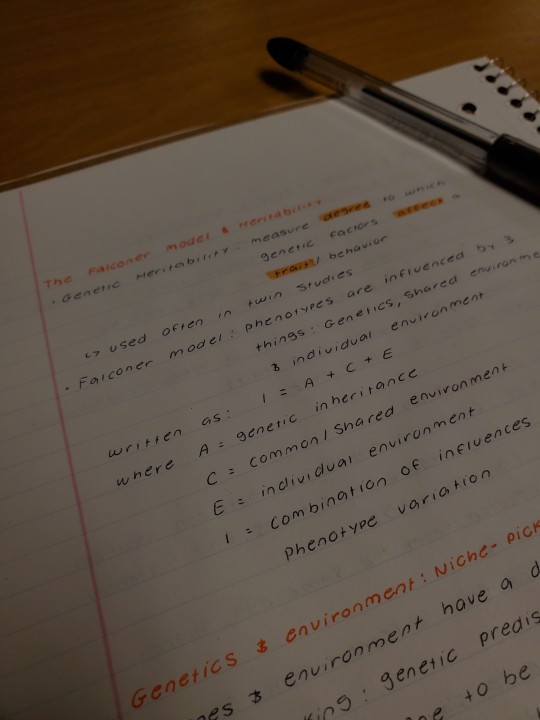 The Falconer model & Heritability
· Genetic Heritability: measure degree to which
genetic factors affect a
trait/behavior
↳ used often in twin studies
· Falconer model: phenotypes are influenced by 3
things: Genetics, shared environme
& individual environment
written as: 1 = A + C + E
where A = genetic inheritance
C = common/shared environment
E = individual environment
1 = combination of influences
phenotype variation
Genetics & environment: Niche-pick
nes & environment have a d
king: genetic predis
to be